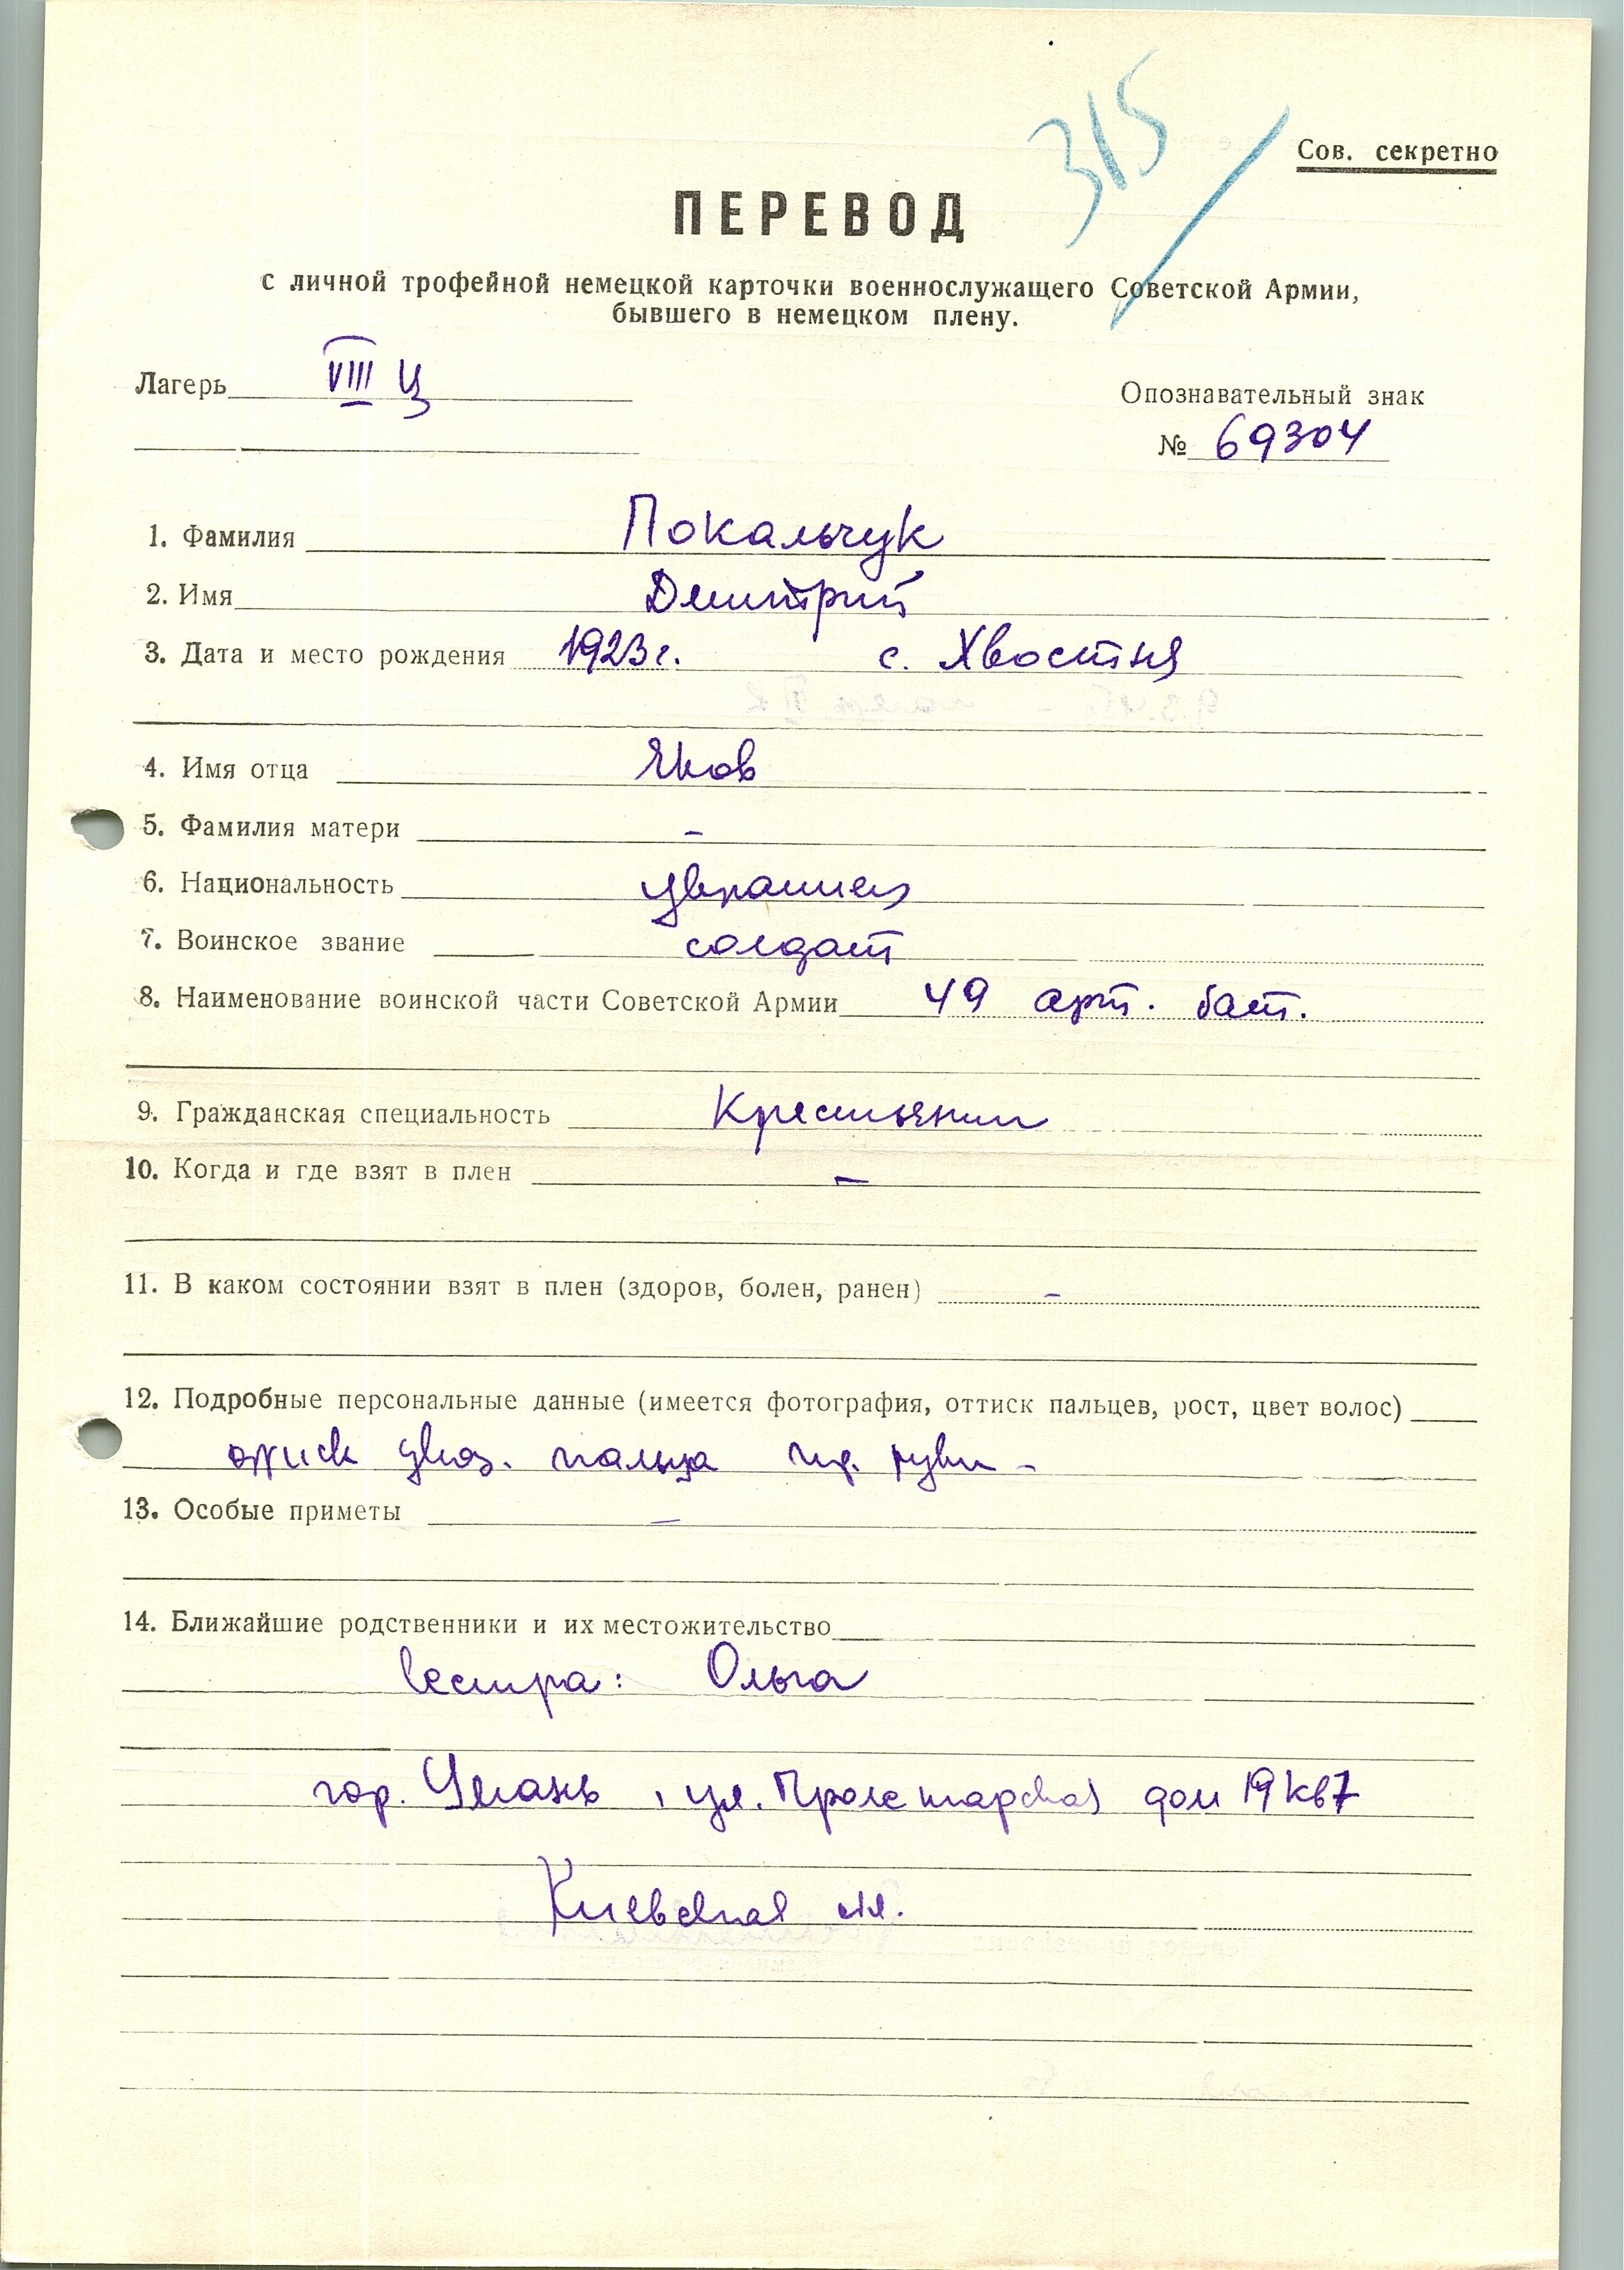 315
Сов. секретно
ПЕРЕВОД
с личной трофейной немецкой карточки военнослужащего Советской Армии,
бывшего в немецком плену.
Лагерь VIII Ц
Опознавательный знак
№ 69304
1. Фамилия Покальчук
2. Имя Дмитрий
3. Дата и место рождения 1923 г. с. Хвостня
4. Имя отца Яков
5. Фамилия матери –
6. Национальность украинец
7. Воинское звание солдат
8. Наименование воинской части Советской Армии 49 арт. бат.
9. Гражданская специальность Крестьянин
10. Когда и где взят в плен –
11. В каком состоянии взят в плен (здоров, болен, ранен) –
12. Подробные персональные данные (имеется фотография, оттиск пальцев, рост, цвет волос)
указ. пальца руки –
13. Особые приметы –
14. Ближайшие родственники и их местожительство
Сестра: Ольга
гор. Умань, ул. Пролетарская дом 19 кв 7
Киевская обл.